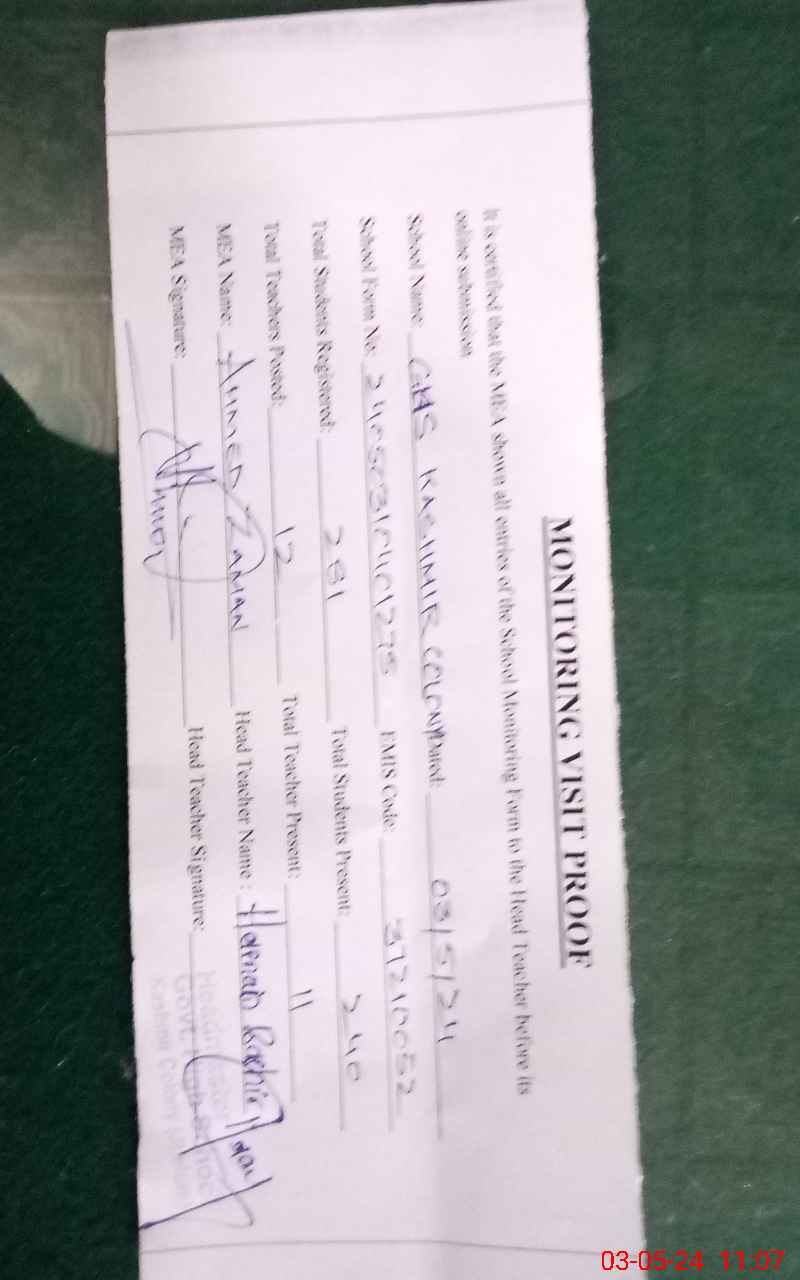 MONITORING VISIT PROOF
It is certified that the MEA shown all entries of the School Monitoring Form to the Head Teacher before its
online submission
School Name: GHS KASHMIR COLONY Dated: 03/5/24
School Form No: EMIS Code: 37210052
Total Students Registered: 281 Total Students Present: 240
Total Teachers Posted: 12 Total Teacher Present: 11
MEA Name: AHMED ZAMAN Head Teacher Name :
MEA Signature: Head Teacher Signature:
Kashmir Colony
03-05-24 11:07